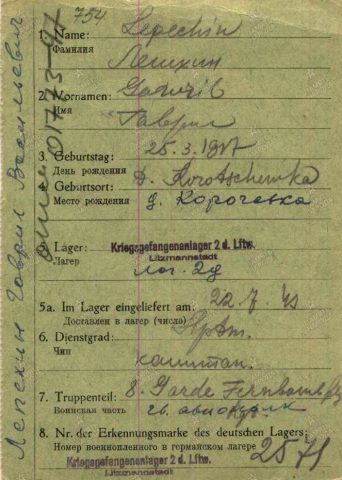 754
1. Name: Lepechin
Фамилия Лепихин
2. Vornamen: Gawril
Имя Гаврил
3. Geburtstag: 25.3.1917
День рождения
4. Geburtsort: D. Korotschewka
Место рождения д. Корочевка
5. Lager: Kriegsgefangenenlager 2 d. Lftw.
Litzmannstadt
Лагер лаг. 2д
5a. Im Lager eingeliefert am: 22.7.43
Доставлен в лагер (число)
6. Dienstgrad: Hptm.
Чин капитан.
7. Truppenteil: 8. Garde
Воинская часть гв. авиаполк
8. Nr. der Erkennungsmarke des deutschen Lagers:
Номер военнопленного в германском лагере 2571
Kriegsgefangenenlager 2 d. Lftw.
Лепехин Гаврил Васильевич